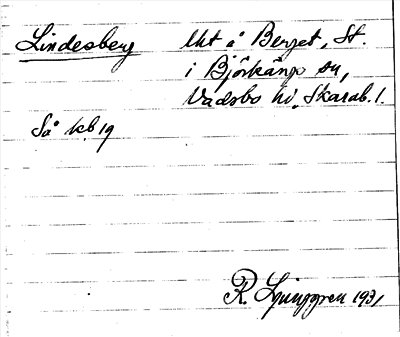 Lindesberg Uht å Berget, St.
i Björkängs sn,
Vadsbo hd, Skarab. l.
Så kb 19
R. Ljunggren 1931